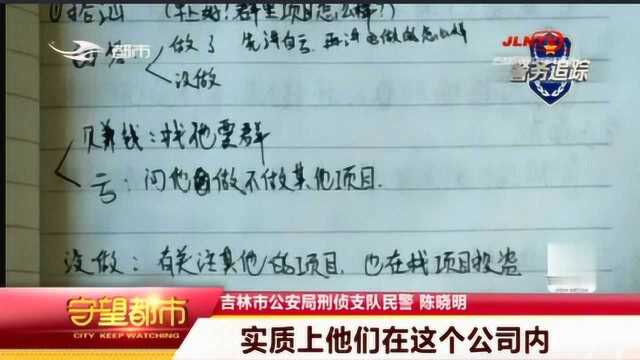 ①搭讪 (早上好!群里项目怎么样?)
都市
JLMPTV
警务追踪
回答
做了 先没自己 再没 做的怎么样
没做
赚钱:找他要群
亏:问他 做不做其他项目.
没做:有关注其他的项目.也在找项目投资
守望都市
CITY KEEP WATCHING
吉林市公安局刑侦支队民警 陈晓明
实质上他们在这个公司内